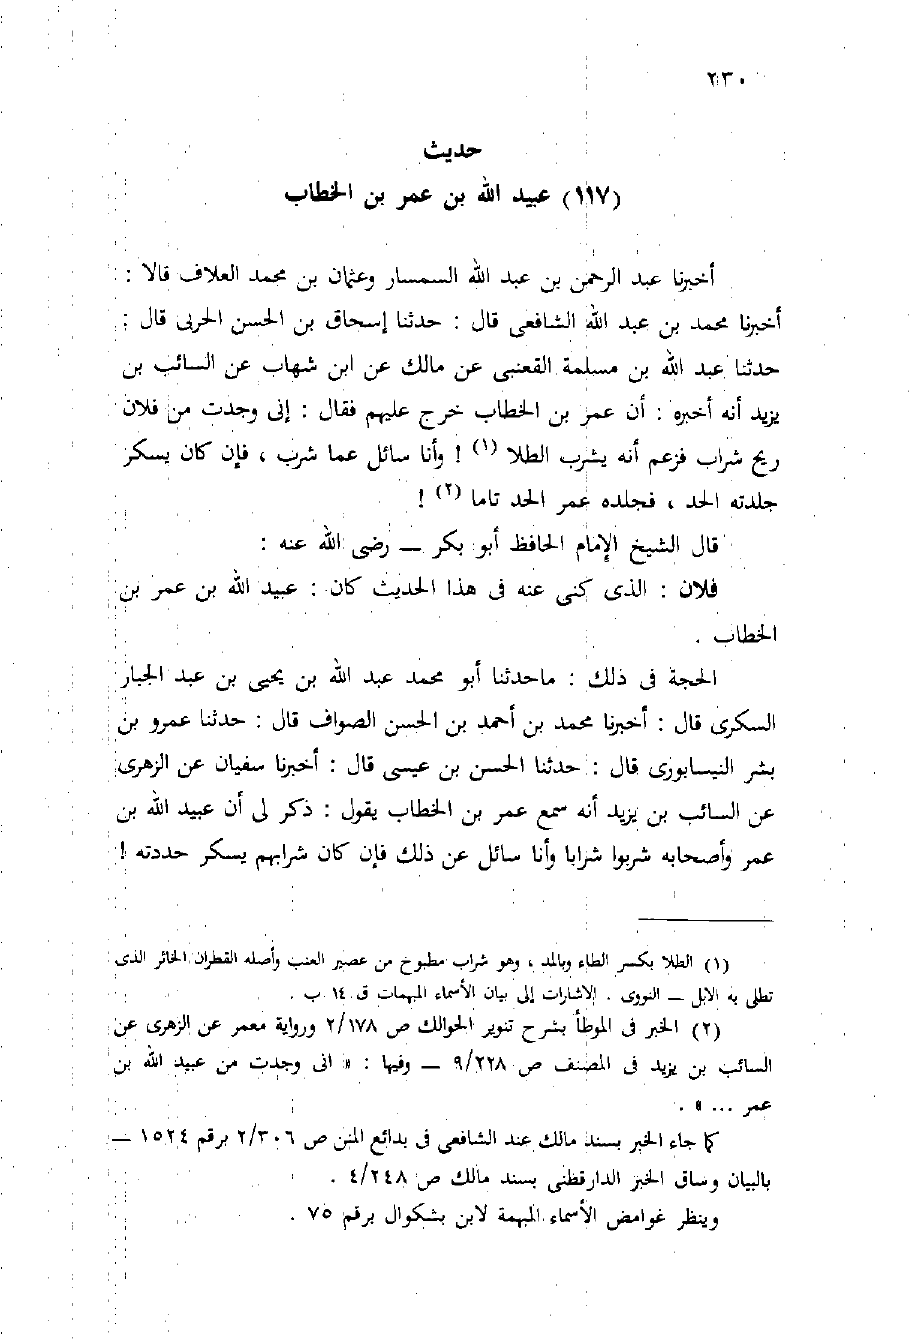 ٢٣٠
حديث
(١١٧) عبيد الله بن عمر بن الخطاب
أخبرنا عبد الرحمن بن عبد الله السمسار وعثمان بن محمد العلاف قالا :
أخبرنا محمد بن عبد الله الشافعى قال : حدثنا إسحاق بن الحسن الحربى قال :
حدثنا عبد الله بن مسلمة القعنبى عن مالك عن ابن شهاب عن السائب بن
يزيد أنه أخبره : أن عمر بن الخطاب خرج عليهم فقال : إنى وجدت من فلان
ريح شراب فزعم أنه يشرب الطلا (١) ! وأنا سائل عما شرب ، فإن كان يسكر
جلدته الحد ، فجلده عمر الحد تاما (٢) !
قال الشيخ الإمام الحافظ أبو بكر — رضى الله عنه :
فلان : الذى كنى عنه فى هذا الحديث كان : عبيد الله بن عمر بن
الخطاب .
الحجة فى ذلك : ماحدثنا أبو محمد عبد الله بن يحيى بن عبد الجبار
السكرى قال : أخبرنا محمد بن أحمد بن الحسن الصواف قال : حدثنا عمرو بن
بشر النيسابورى قال : حدثنا الحسن بن عيسى قال : أخبرنا سفيان عن الزهرى
عن السائب بن يزيد أنه سمع عمر بن الخطاب يقول : ذكر لى أن عبيد الله بن
عمر وأصحابه شربوا شرابا وأنا سائل عن ذلك فإن كان شرابهم يسكر حددته !
(١) الطلا بكسر الطاء وبالمد ، وهو شراب مطبوخ من عصير العنب وأصله القطران الخائر الذى
تطلى به الابل — النووى . الاشارات إلى بيان الأسماء المبهمات ق ١٤ ب .
(٢) الخبر فى الموطأ بشرح تنوير الحوالك ص ٢/١٧٨ ورواية معمر عن الزهرى عن
السائب بن يزيد فى المصنف ص ٩/٢٢٨ — وفيها : « انى وجدت من عبيد الله بن
عمر ... » .
كما جاء الخبر بسند مالك عند الشافعى فى بدائع المنن ص ٢/٣٠٦ برقم ١٥٢٤ —
بالبيان وساق الخبر الدارقطنى بسند مالك ص ٤/٢٤٨ .
وينظر غوامض الأسماء المبهمة لابن بشكوال برقم ٧٥ .